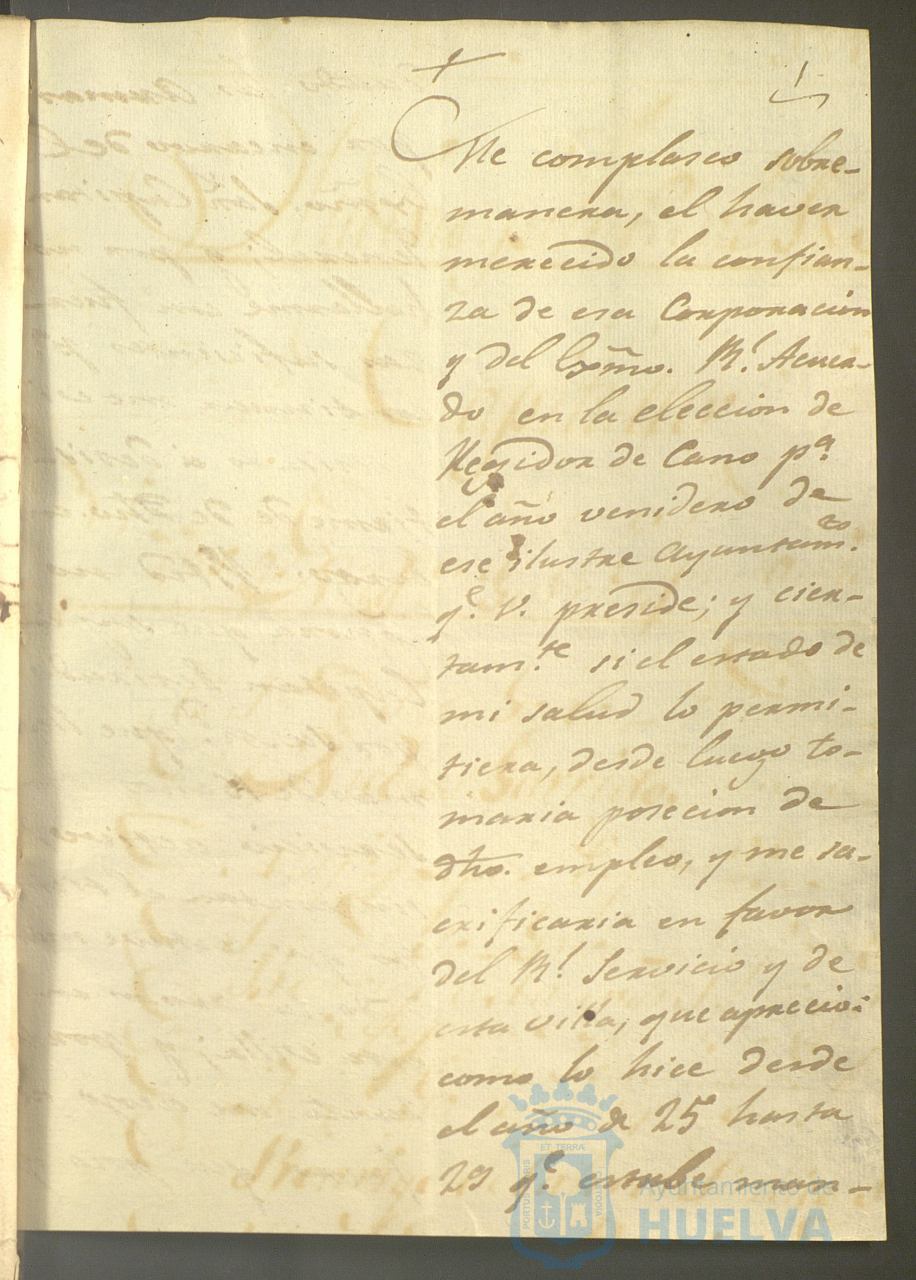 1
Me complasco sobre-
manera, el haver
merecido la confian-
za de esa Corporacion
y del Exmo. Rl. Acuer-
do en la eleccion de
Regidor de Cano pa.
el año venidero de
ese ilustre Ayuntamto.
qe. V. preside; y cier-
tamte. si el estado de
mi salud lo permi-
tiera, desde luego to-
maria posecion de
dho. empleo, y me sa-
crificaria en favor
del Rl. Servicio y de
esta villa, que aprecio:
como lo hice desde
el año de 25 hasta
29 qe. estube man-
PORTUS MARIS
ET TERRÆ
CUSTODIA
Ayuntamiento de
HUELVA